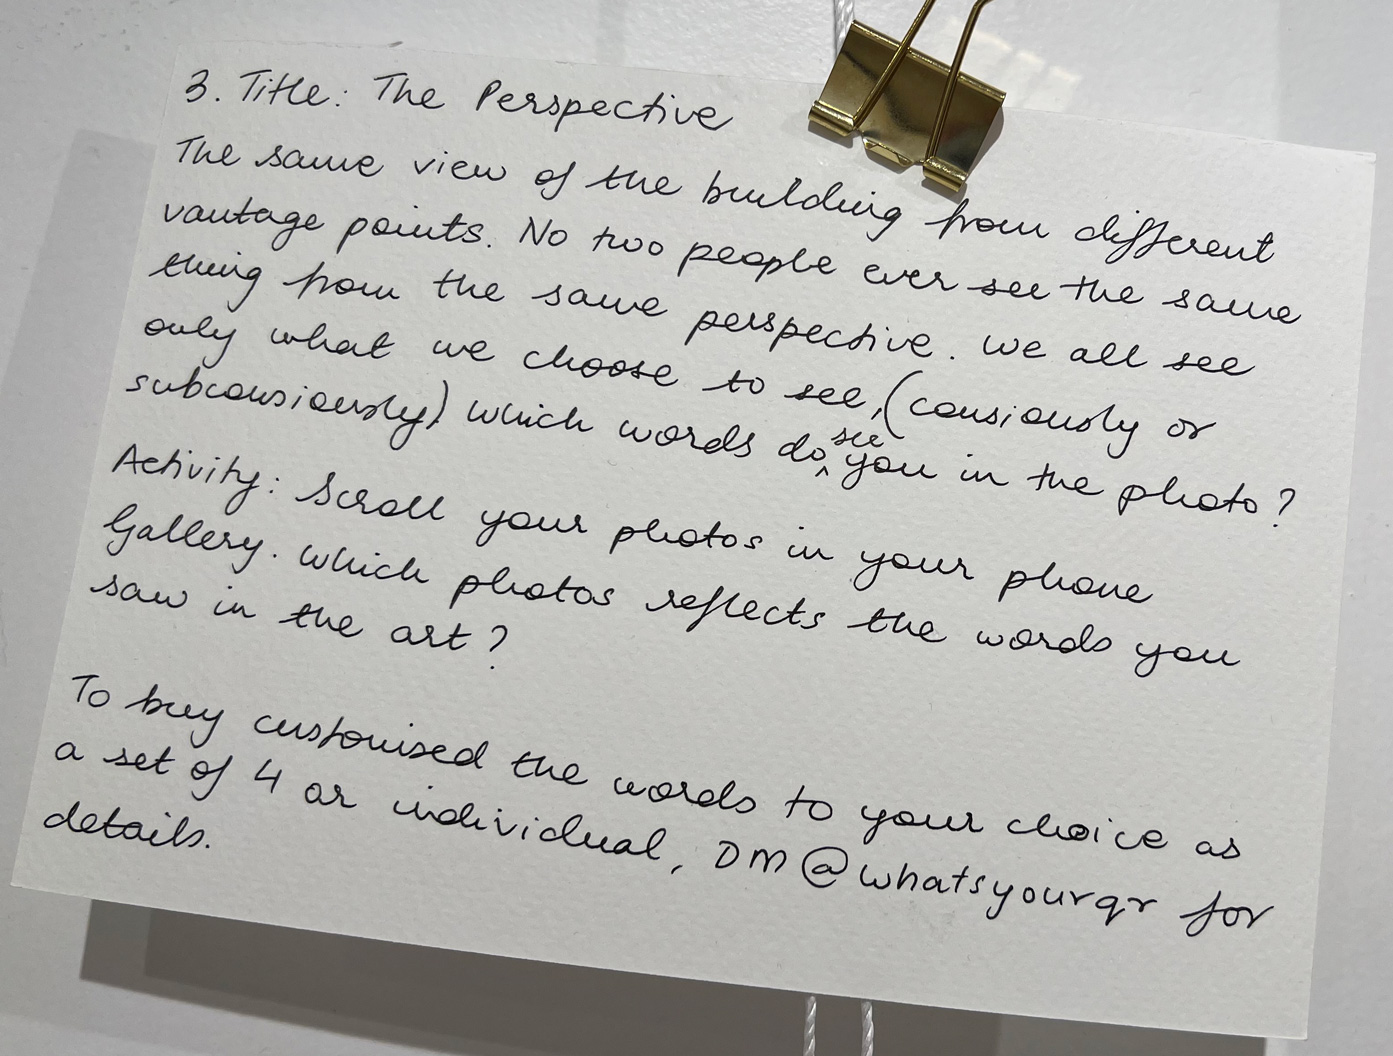 3. Title: The Perspective
The same view of the building from different
vantage points. No two people ever see the same
thing from the same perspective. We all see
only what we choose to see, (consiously or
subconsiously) which words do, see you in the photo?
Activity: Scroll your photos in your phone
Gallery. Which photos reflects the words you
saw in the art?
To buy customised the words to your choice as
a set of 4 or individual, DM @whatsyourqr for
details.